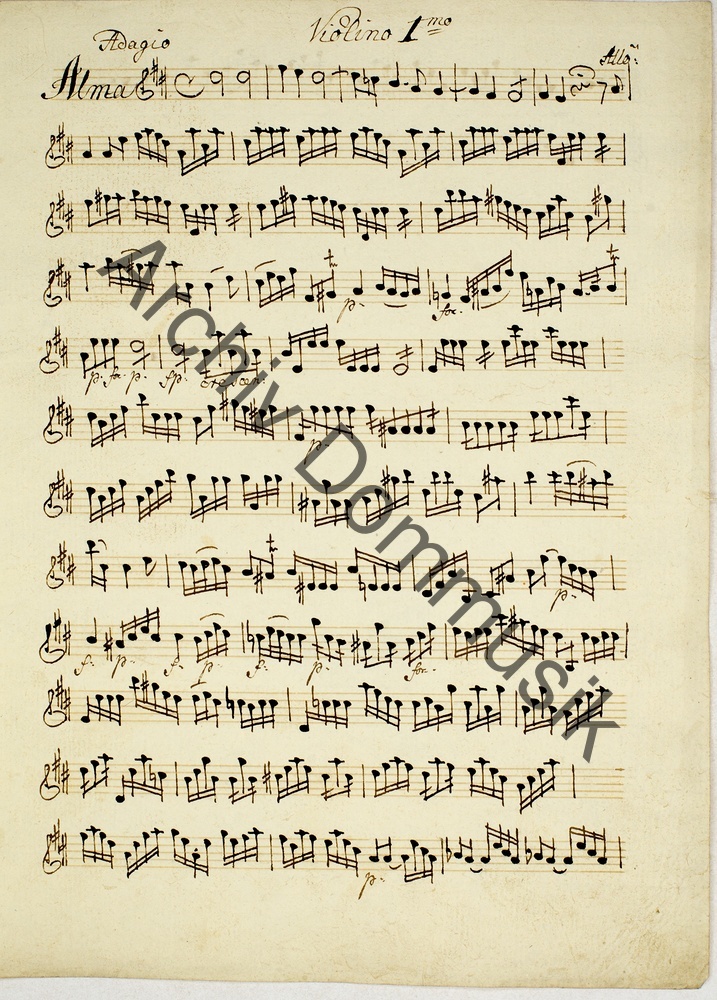 Violino 1mo
Adagio
Allo:
Alma
tr
tr
p: for:
p: fo: p: fp: crescen:
p:
tr
p:
f: p: f: p: f: p: for:
p:
Archiv Dommusik